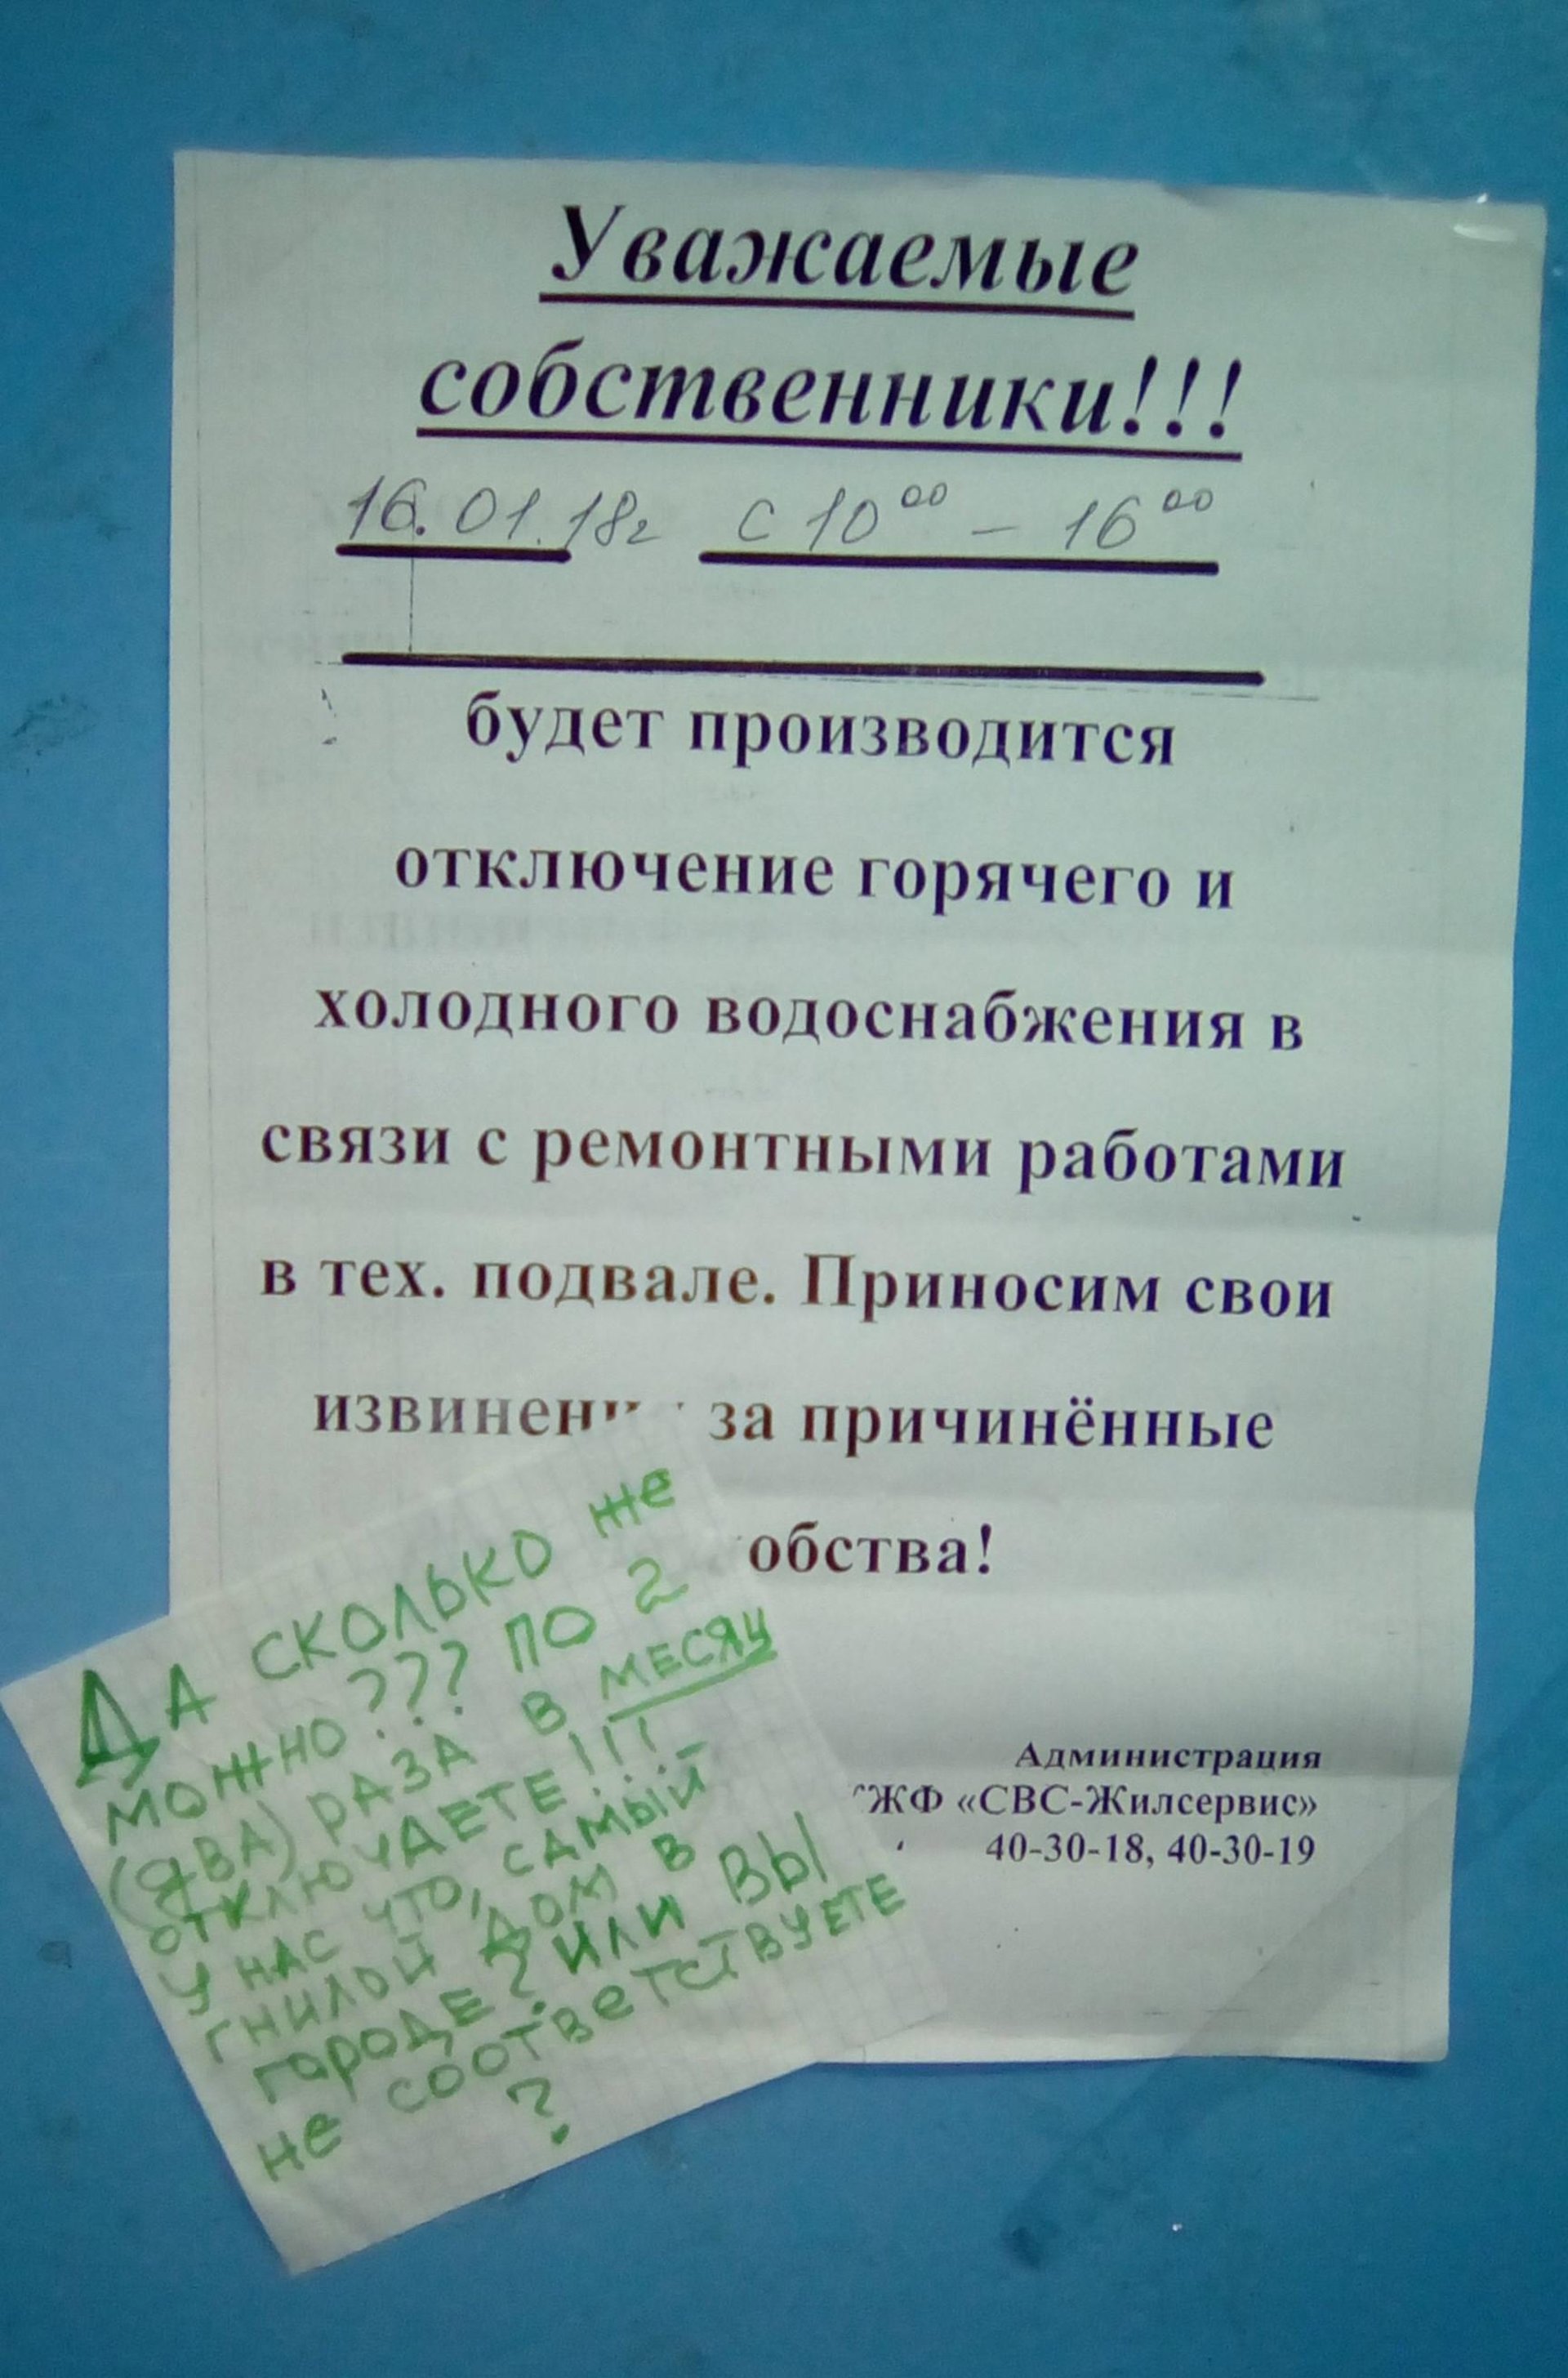 Уважаемые
собственники!!!
16.01.18г с 10⁰⁰ – 16⁰⁰
будет производится
отключение горячего и
холодного водоснабжения в
связи с ремонтными работами
в тех. подвале. Приносим свои
извинени за причинённые
обства!
Администрация
ЖФ «СВС-Жилсервис»
40-30-18, 40-30-19
ДА СКОЛЬКО же
МОЖНО??? ПО 2
(ДВА) РАЗА В МЕСЯЦ
ОТКЛЮЧАЕТЕ!!!
У НАС ЧТО, САМЫЙ
ГНИЛОЙ ДОМ В
ГОРОДЕ? ИЛИ ВЫ
Не СООТВеТСТВУЕТЕ
?